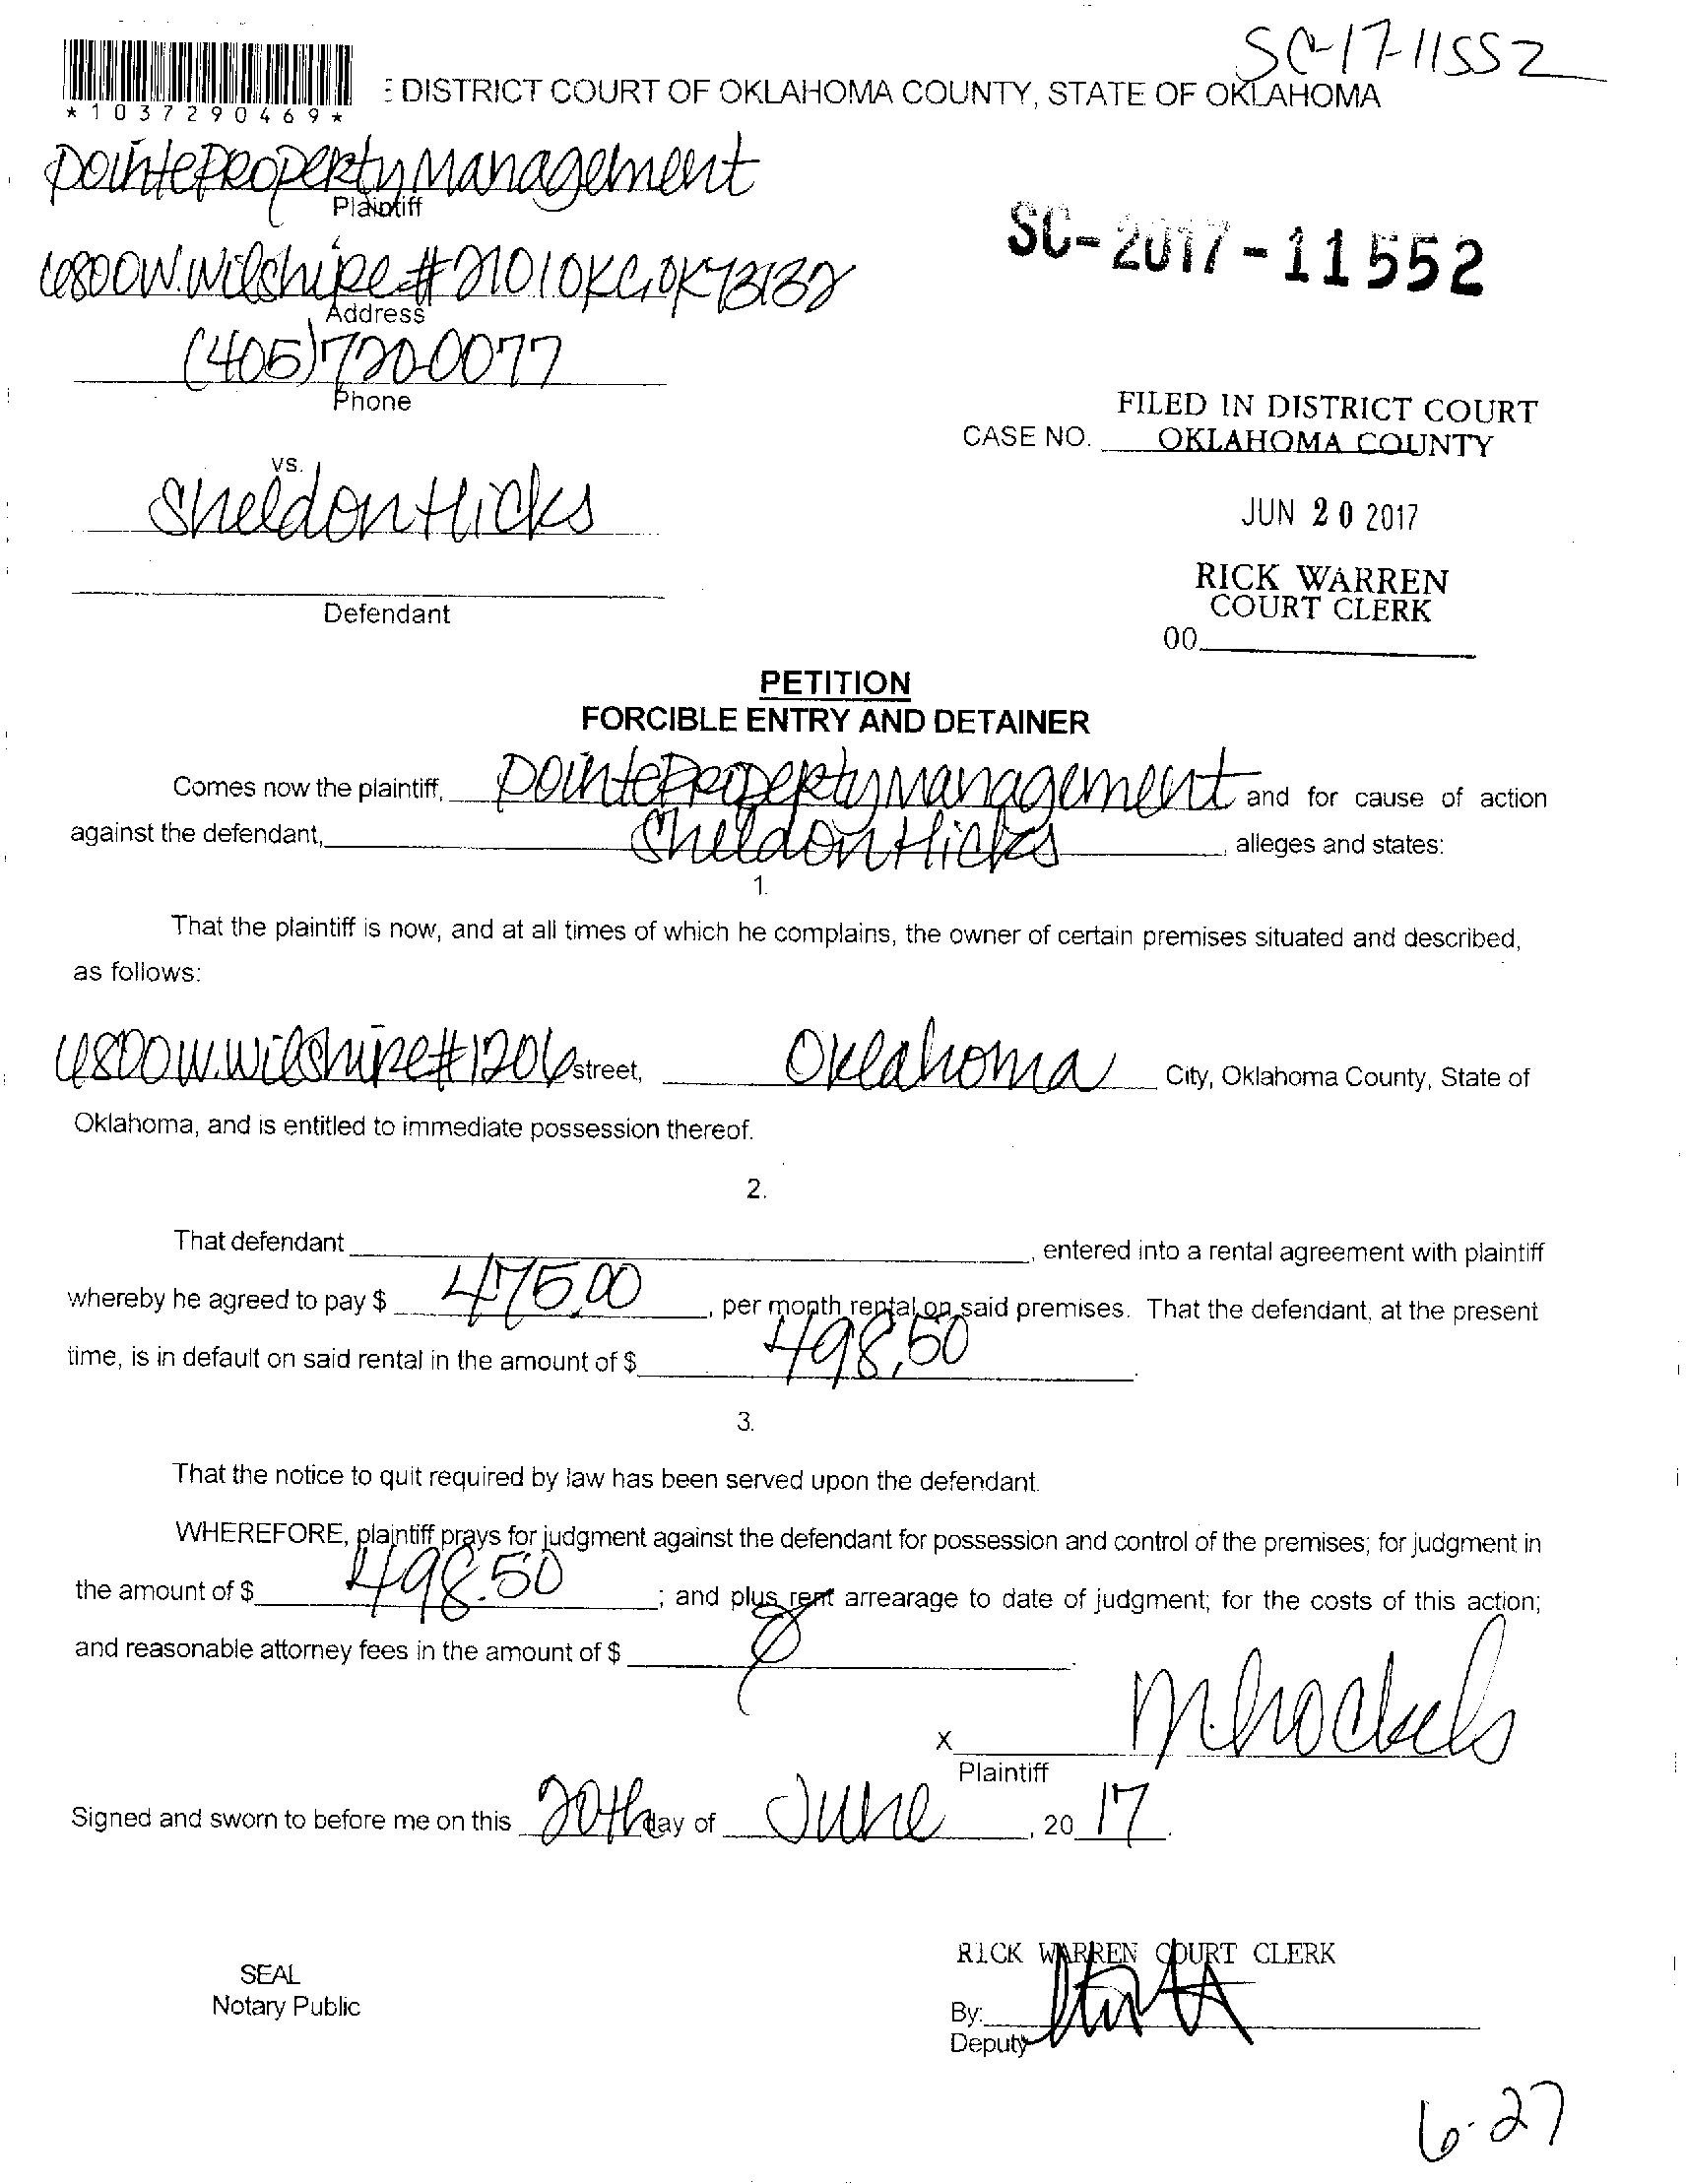 SC-17-11552
DISTRICT COURT OF OKLAHOMA COUNTY, STATE OF OKLAHOMA
*1037290469*
Pointe Property Management
Plaintiff
6800 W. Wilshire #2101 OKC, OK 73132
Address
SC-2017-11552
(405) 720-0077
Phone
FILED IN DISTRICT COURT
CASE NO. OKLAHOMA COUNTY
vs.
Sheldon Hicks
JUN 20 2017
RICK WARREN
COURT CLERK
Defendant
00
PETITION
FORCIBLE ENTRY AND DETAINER
Comes now the plaintiff, Pointe Property Management and for cause of action
against the defendant, Sheldon Hicks, alleges and states:
1.
That the plaintiff is now, and at all times of which he complains, the owner of certain premises situated and described,
as follows:
6800 W. Wilshire #1206 street, Oklahoma City, Oklahoma County, State of
Oklahoma, and is entitled to immediate possession thereof.
2.
That defendant , entered into a rental agreement with plaintiff
whereby he agreed to pay $ 475.00, per month rental on said premises. That the defendant, at the present
time, is in default on said rental in the amount of $ 498.50.
3.
That the notice to quit required by law has been served upon the defendant.
WHEREFORE, plaintiff prays for judgment against the defendant for possession and control of the premises; for judgment in
the amount of $ 498.50; and plus rent arrearage to date of judgment; for the costs of this action;
and reasonable attorney fees in the amount of $
X
Plaintiff
Signed and sworn to before me on this 20th day of June, 20 17.
RICK WARREN COURT CLERK
SEAL
Notary Public
By:
Deputy
6-27